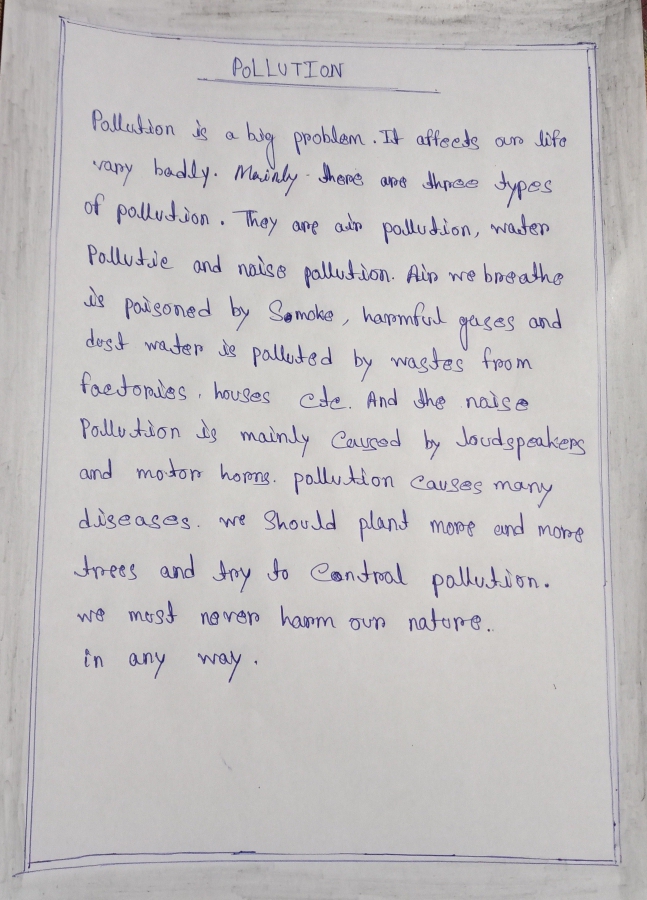 POLLUTION
Pollution is a big problem. It affects our life
vary badly. Mainly there are three types
of pollution. They are air pollution, water
Pollutie and noise pollution. Air we breathe
is poisoned by Somoke, harmful gases and
dost water is polluted by wastes from
factories, houses etc. And the noise
Pollution is mainly Caused by loudspeakers
and motor horns. pollution causes many
diseases. we Should plant more and more
trees and try to Control pollution.
we most never harm our nature..
in any way.